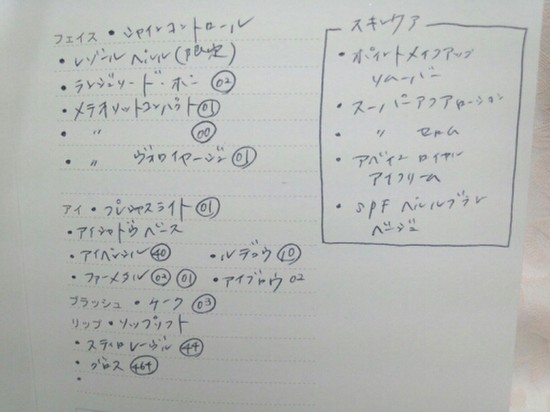 フェイス・シャインコントロール
・レゾールペルル(限定)
・ランジェリード・ポー 02
・メテオリットコンパクト 01
・ 〃 00
・ 〃 ヴォワイヤージュ 01
アイ・プレシャスライト 01
・アイシャドウベース
・アイペンシル 40 ・ルデュウ 10
・ファーメタル 02 01 ・アイブロウ 02
ブラッシュ・ケーク 03
リップ・リップリフト
・スティロレーヴル 44
・グロス 464
スキンケア
・ポイントメイクアップ
リムーバー
・スーパーアクアローション
・ 〃 セロム
・アベイユロイヤル
アイクリーム
・SPF ペルルブラン
ベージュ